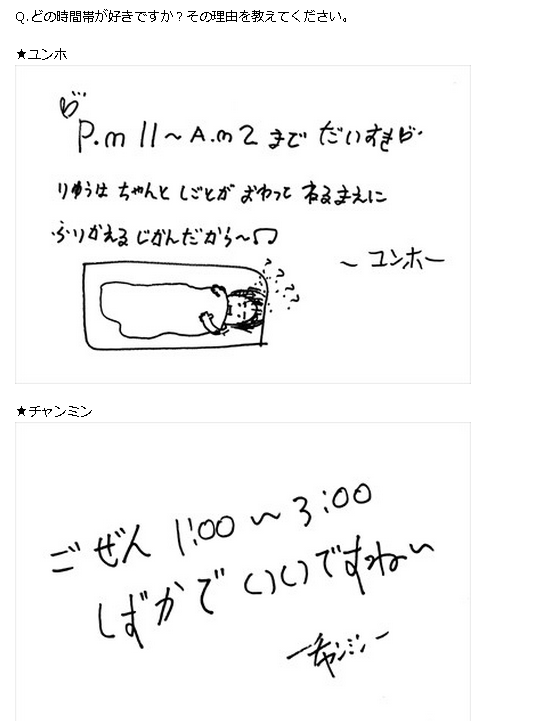 Q.どの時間帯が好きですか？その理由を教えてください。
★ユンホ
P.m 11~A.m 2 まで だいすき
りゆうは ちゃんと しごとが おわって ねるまえに
ふりかえる じかんだから~♫
~ ユンホー
? ? ? ?
★チャンミン
ごぜん 1:00 ~ 3:00
しずかで いいですね~
ーチャンミンー